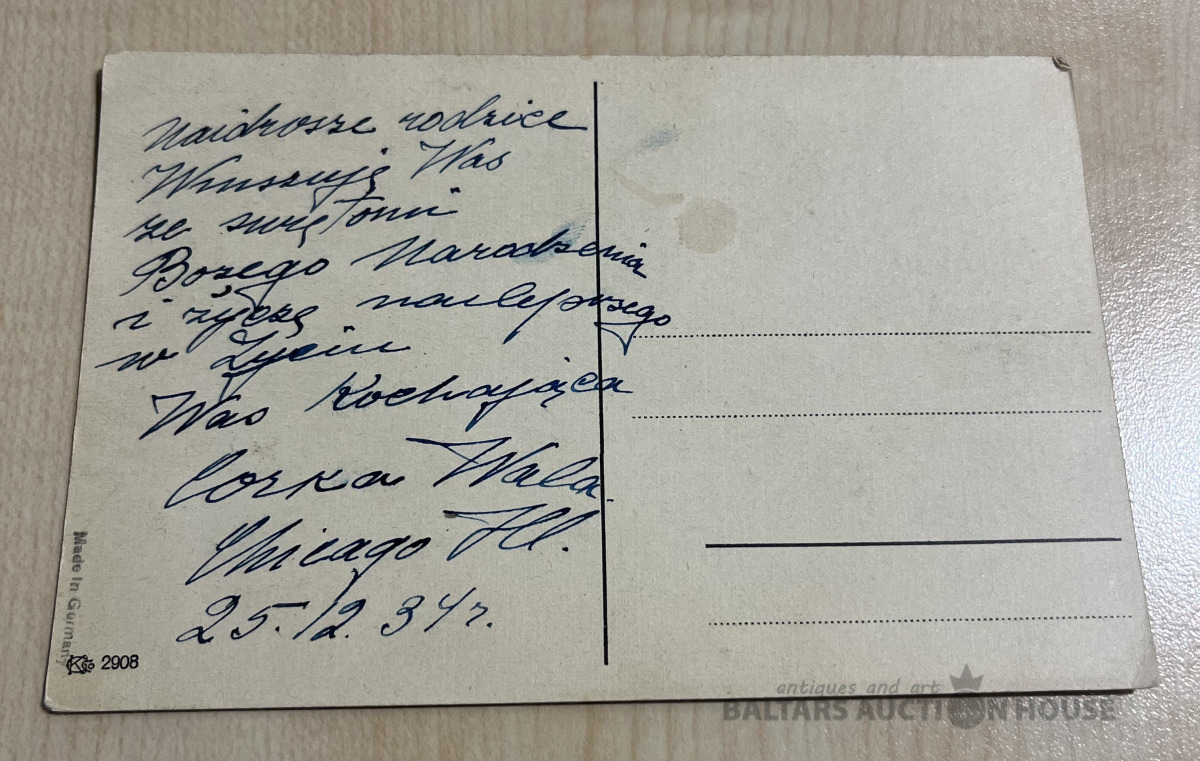 Naidrosze rodzice
Winszuję Was
ze swiętami
Bozego Narodzenia
i życzę nailepszego
w Życiu
Was Kochająca
Corka Wala
Chicago Ill.
25.12.34 r.
Made in Germany
2908
antiques and art
BALTARS AUCTION HOUSE